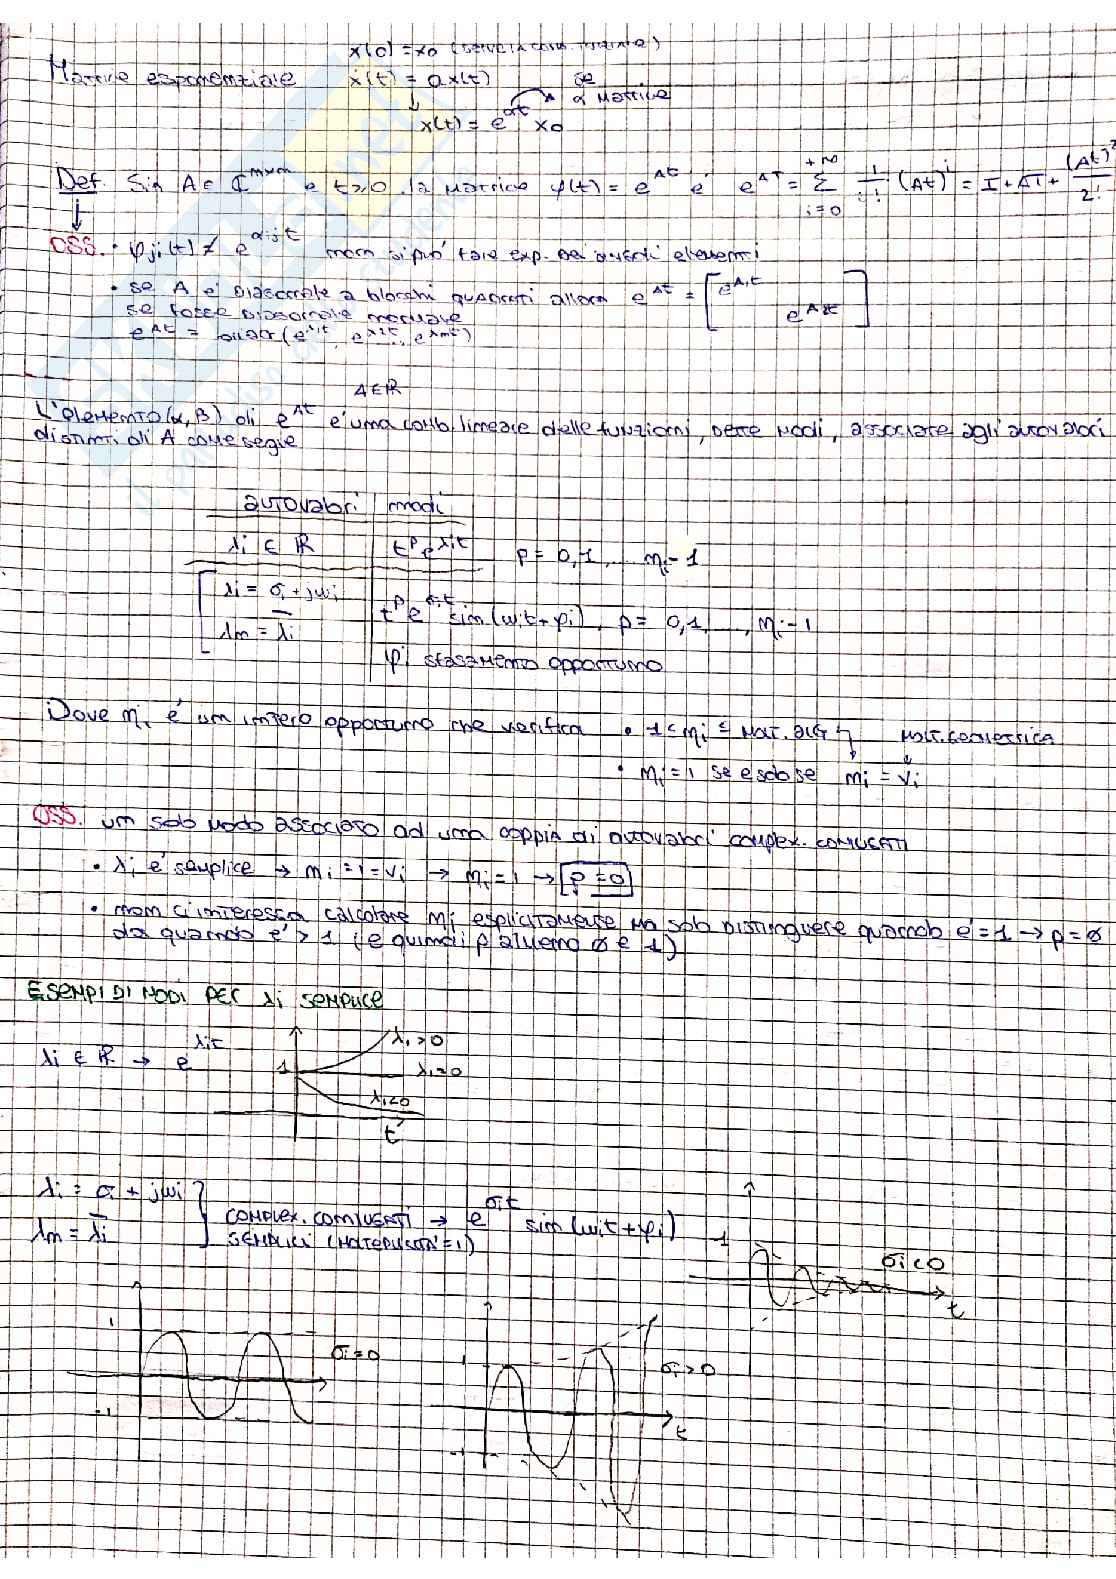 x(0) = x0 (serve la cond. iniziale)
Matrice esponenziale ẋ(t) = a x(t) se a matrice
↓
x(t) = e^{at} x0
Def. Sia A ∈ ℂ^{n×n} e t ≥ 0 la matrice φ(t) = e^{At} è e^{At} = Σ_{i=0}^{+∞} 1/i! (At)^i = I + At + (At)²/2!
OSS. • φji(t) ≠ e^{αijt} non si può fare exp. dei questi elementi
• se A è diagonale a blocchi quadrati allora e^{At} = [e^{A1t} e^{A2t}]
se fosse diagonale normale
e^{At} = diag(e^{λ1t}, e^{λ2t}, e^{λnt})
A ∈ ℝ
L'elemento (α, β) di e^{At} è una comb. lineare delle funzioni, dette modi, associate agli autovalori
distinti di A come segue
autovalori modi
λi ∈ ℝ t^p e^{λit} p = 0, 1, .... ηi - 1
λi = σi + jωi
t^p e^{σit} sin(ωit + φi), p = 0, 1, ..., ηi - 1
λm = λ̄i
φi sfasamento opportuno
Dove ηi è un intero opportuno che verifica • 1 ≤ ηi ≤ molt. alg molt. geometrica
• ηi = 1 se e solo se mi = νi
OSS. un solo modo associato ad una coppia di autovalori compless. coniugati
• λi è semplice → mi = 1 = νi → ηi = 1 → p = 0
• non ci interessa calcolare ηi esplicitamente ma solo distinguere quando è = 1 → p = 0
da quando è > 1 (e quindi p almeno 0 e 1)
ESEMPI DI MODI PER λi SEMPLICE
λi ∈ ℝ → e^{λit}
λi > 0
1
λi = 0
λi < 0
t
λi = σi + jωi
λm = λ̄i
complex. coniugati
semplici (molteplicità = 1)
→ e^{σit} sin(ωit + φi)
1
σi < 0
t
1
σi = 0
-1
1
σi > 0
t
-1